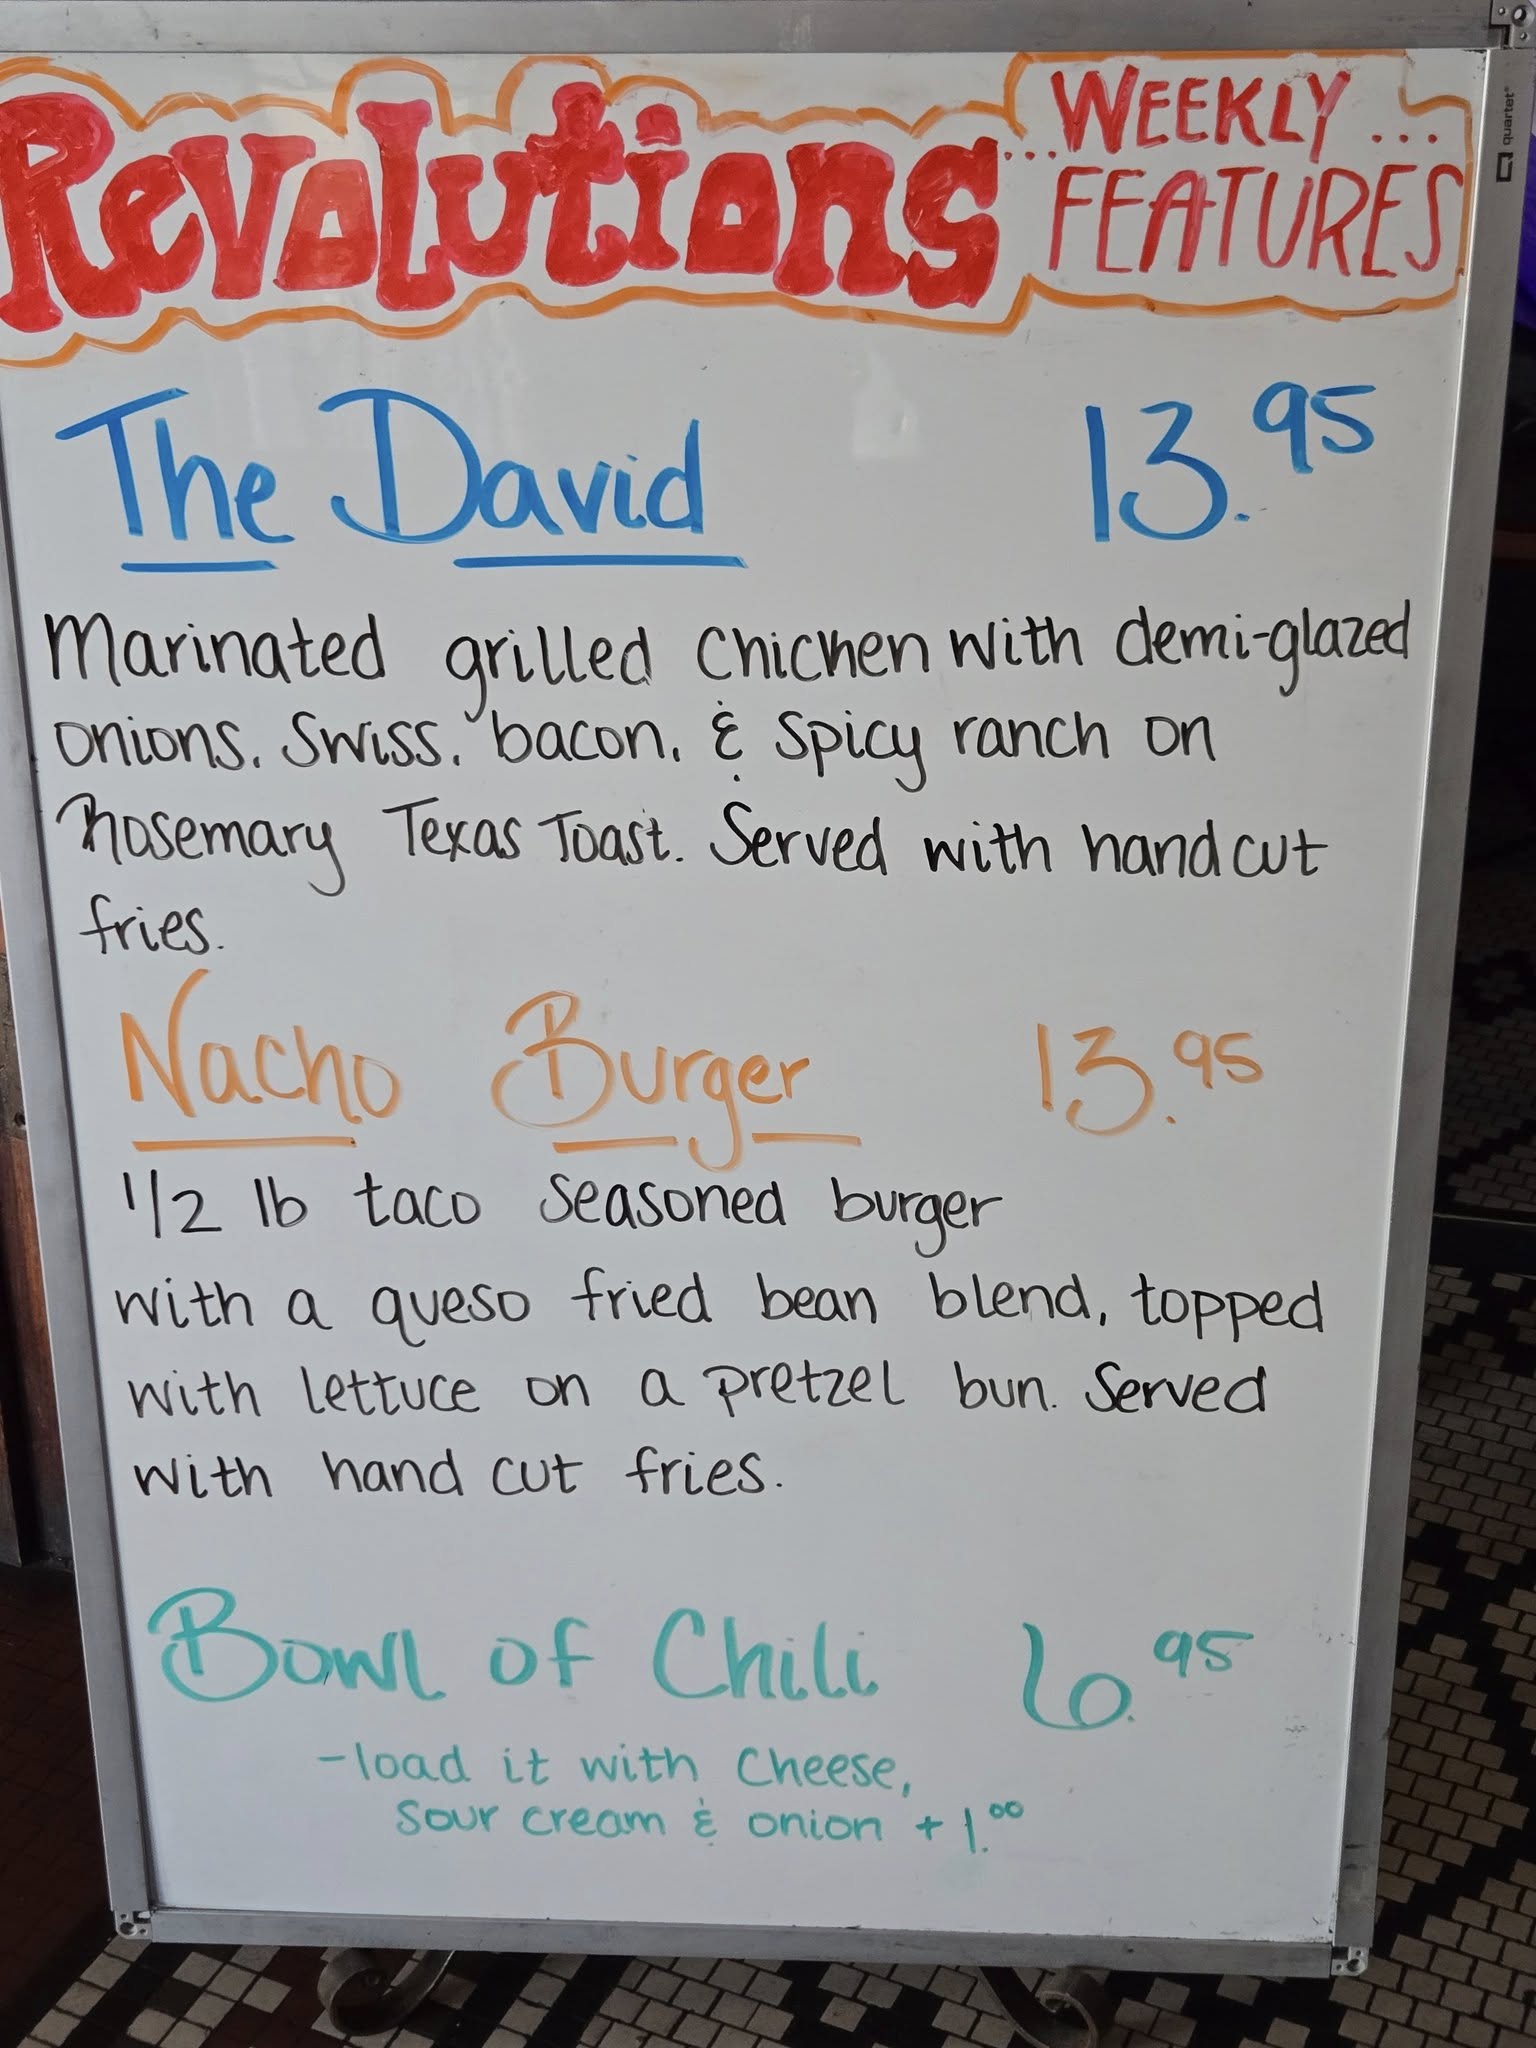 Revolutions ...WEEKLY...
FEATURES
The David 13.95
Marinated grilled chicken with demi-glazed
onions, Swiss, bacon, & spicy ranch on
Rosemary Texas Toast. Served with hand cut
fries.
Nacho Burger 13.95
1/2 lb taco seasoned burger
with a queso fried bean blend, topped
with lettuce on a pretzel bun. Served
with hand cut fries.
Bowl of Chili 6.95
-load it with cheese,
sour cream & onion +1.00
quartet